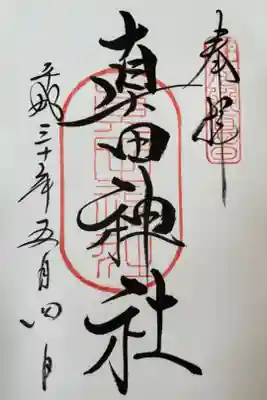 奉拝
真田神社
平成三十年五月四日